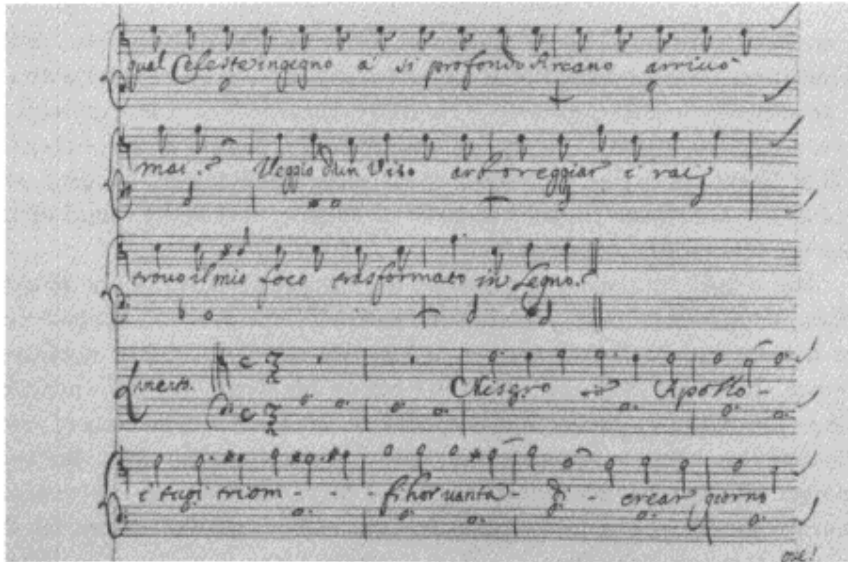 qual Celeste ingegno a' si profondo Arcano arriuò
mai? Veggio d'un Viso arboreggiar i rai,
trouo il mio foco trasformato in Legno.
Apollo -
i tuoi triom - - - fi hor uanta - di - crear giorno